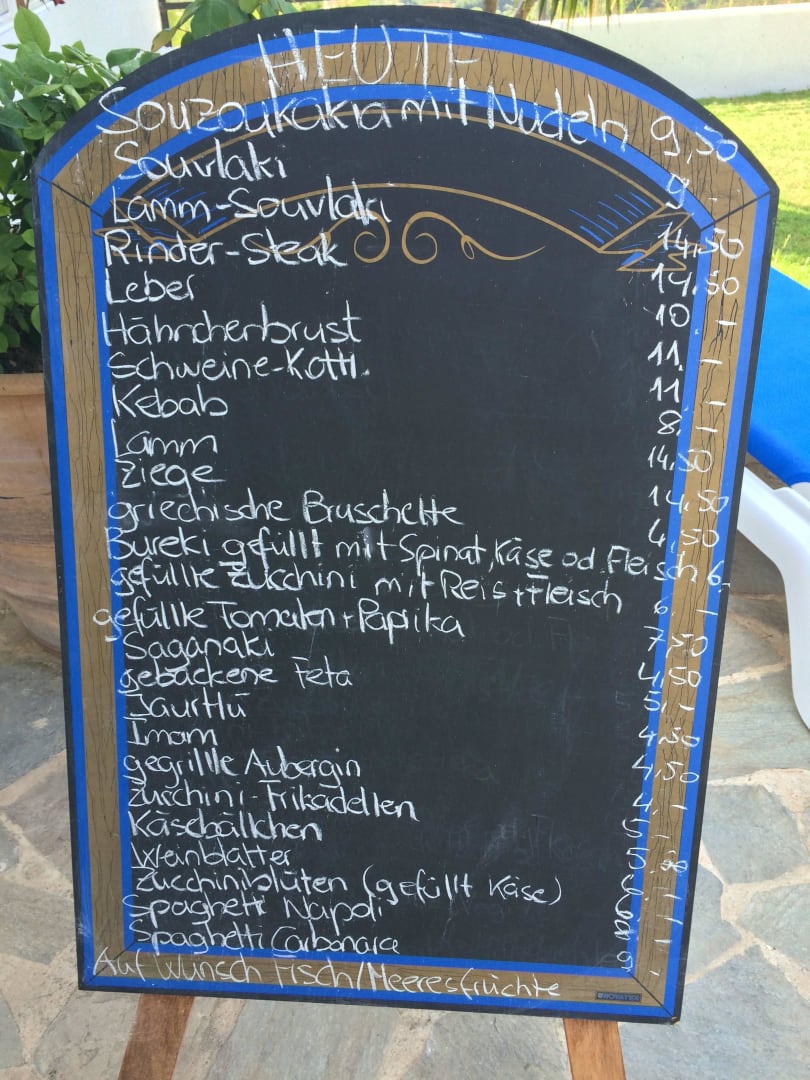 HEUTE
Souzoukakia mit Nudeln 9,50
Souvlaki 9,-
Lamm-Souvlaki 14,50
Rinder-Steak 14,50
Leber 10,-
Hähnchenbrust 11,-
Schweine-Kottl. 11,-
Kebab 8,-
Lamm 14,50
Ziege 14,50
griechische Bruschette 4,50
Bureki gefüllt mit Spinat, Käse od. Fleisch 6,-
gefüllte Zucchini mit Reis + Fleisch 6,-
gefüllte Tomaten + Paprika 7,50
Saganaki 4,50
gebackene Feta 5,-
Jaurtlu 4,50
Imam 4,50
gegrillte Aubergin 4,-
Zucchini-Frikadellen 5,-
Käsebällchen
Weinblätter
Zucchiniblüten (gefüllt Käse)
Spaghetti Napoli
Spaghetti Carbonara
Auf Wunsch Fisch/Meeresfrüchte